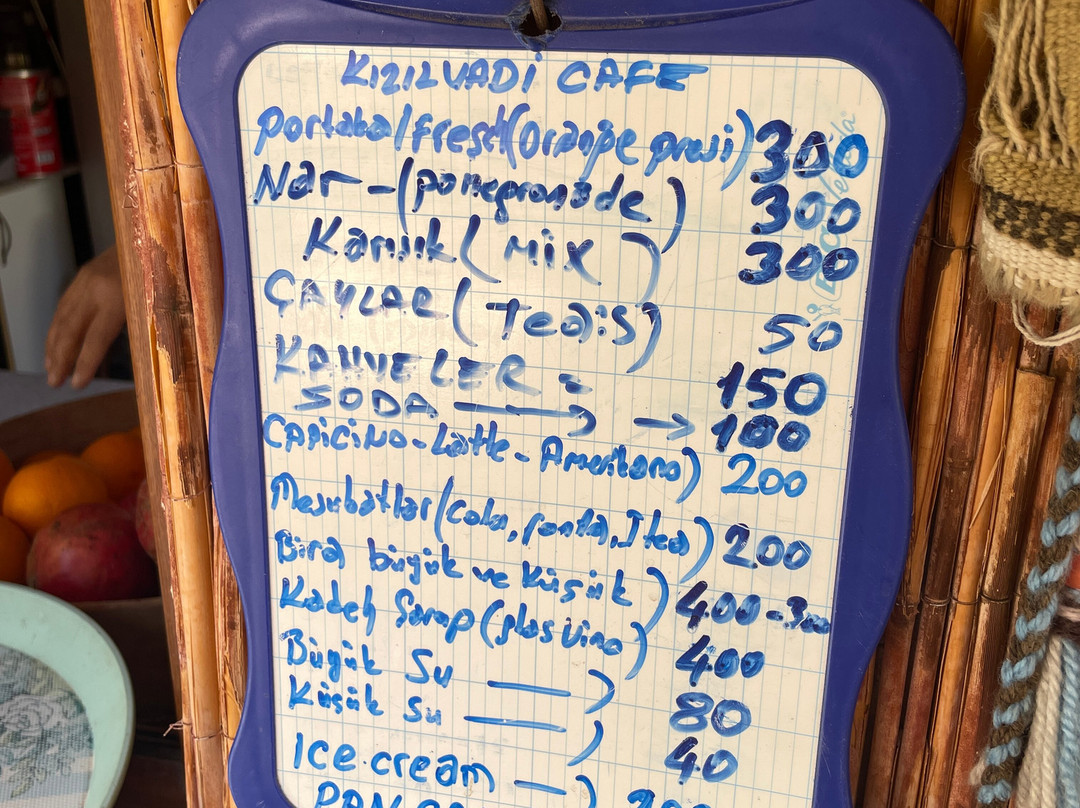 KIZILVADİ CAFE
Portakal fresh (Orange prwsi) 300
Nar - (pomegranade) 300
Karışık (Mix) 300
ÇAYLAR (Teais) 50
KAHVELER = 150
SODA → → 100
CAPICINO - Latte - Amerikano) 200
Meşubatlar (Cola, fanta, Itea) 200
Bira büyük ve Küşük) 400 - 300
Kadeh Şarap (glas Vino) 400
Büyük Su —) 80
Küşük Su —) 40
Ice cream —)